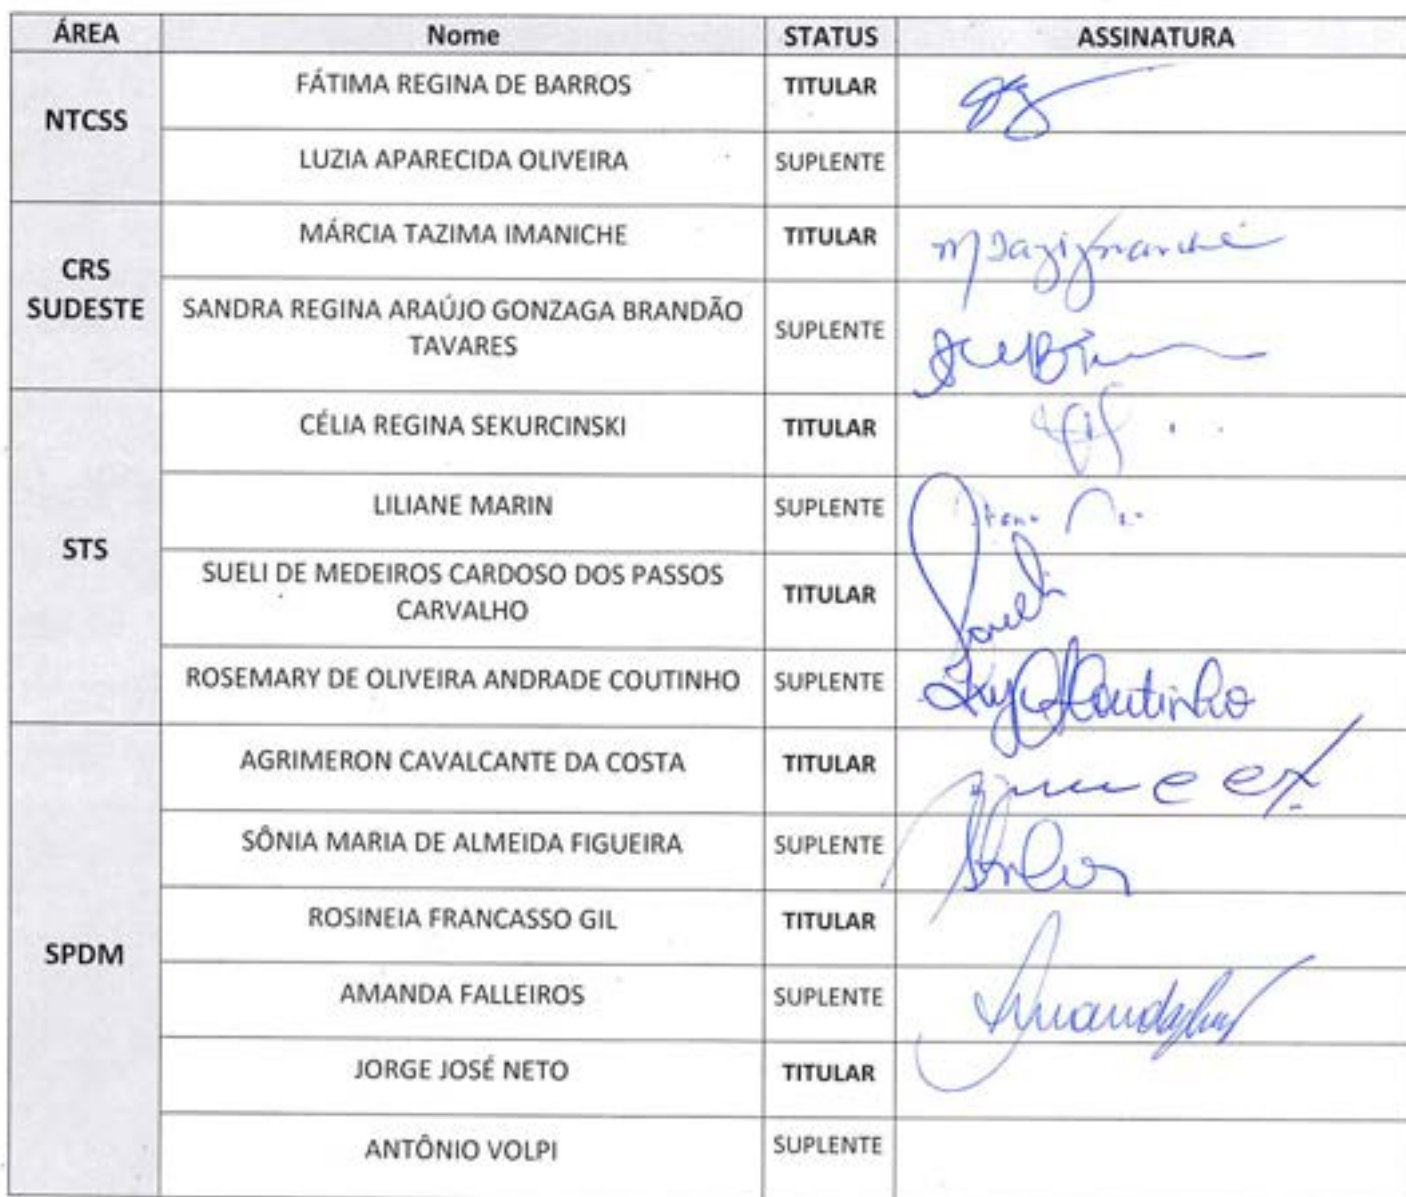 ÁREA Nome STATUS ASSINATURA
NTCSS
FÁTIMA REGINA DE BARROS TITULAR
LUZIA APARECIDA OLIVEIRA SUPLENTE
CRS
SUDESTE
MÁRCIA TAZIMA IMANICHE TITULAR
SANDRA REGINA ARAÚJO GONZAGA BRANDÃO
TAVARES
SUPLENTE
STS
CÉLIA REGINA SEKURCINSKI TITULAR
LILIANE MARIN SUPLENTE
SUELI DE MEDEIROS CARDOSO DOS PASSOS
CARVALHO
TITULAR
Sueli
ROSEMARY DE OLIVEIRA ANDRADE COUTINHO SUPLENTE Coutinho
SPDM
AGRIMERON CAVALCANTE DA COSTA TITULAR
SÔNIA MARIA DE ALMEIDA FIGUEIRA SUPLENTE
ROSINEIA FRANCASSO GIL TITULAR
AMANDA FALLEIROS SUPLENTE
JORGE JOSÉ NETO TITULAR
ANTÔNIO VOLPI SUPLENTE